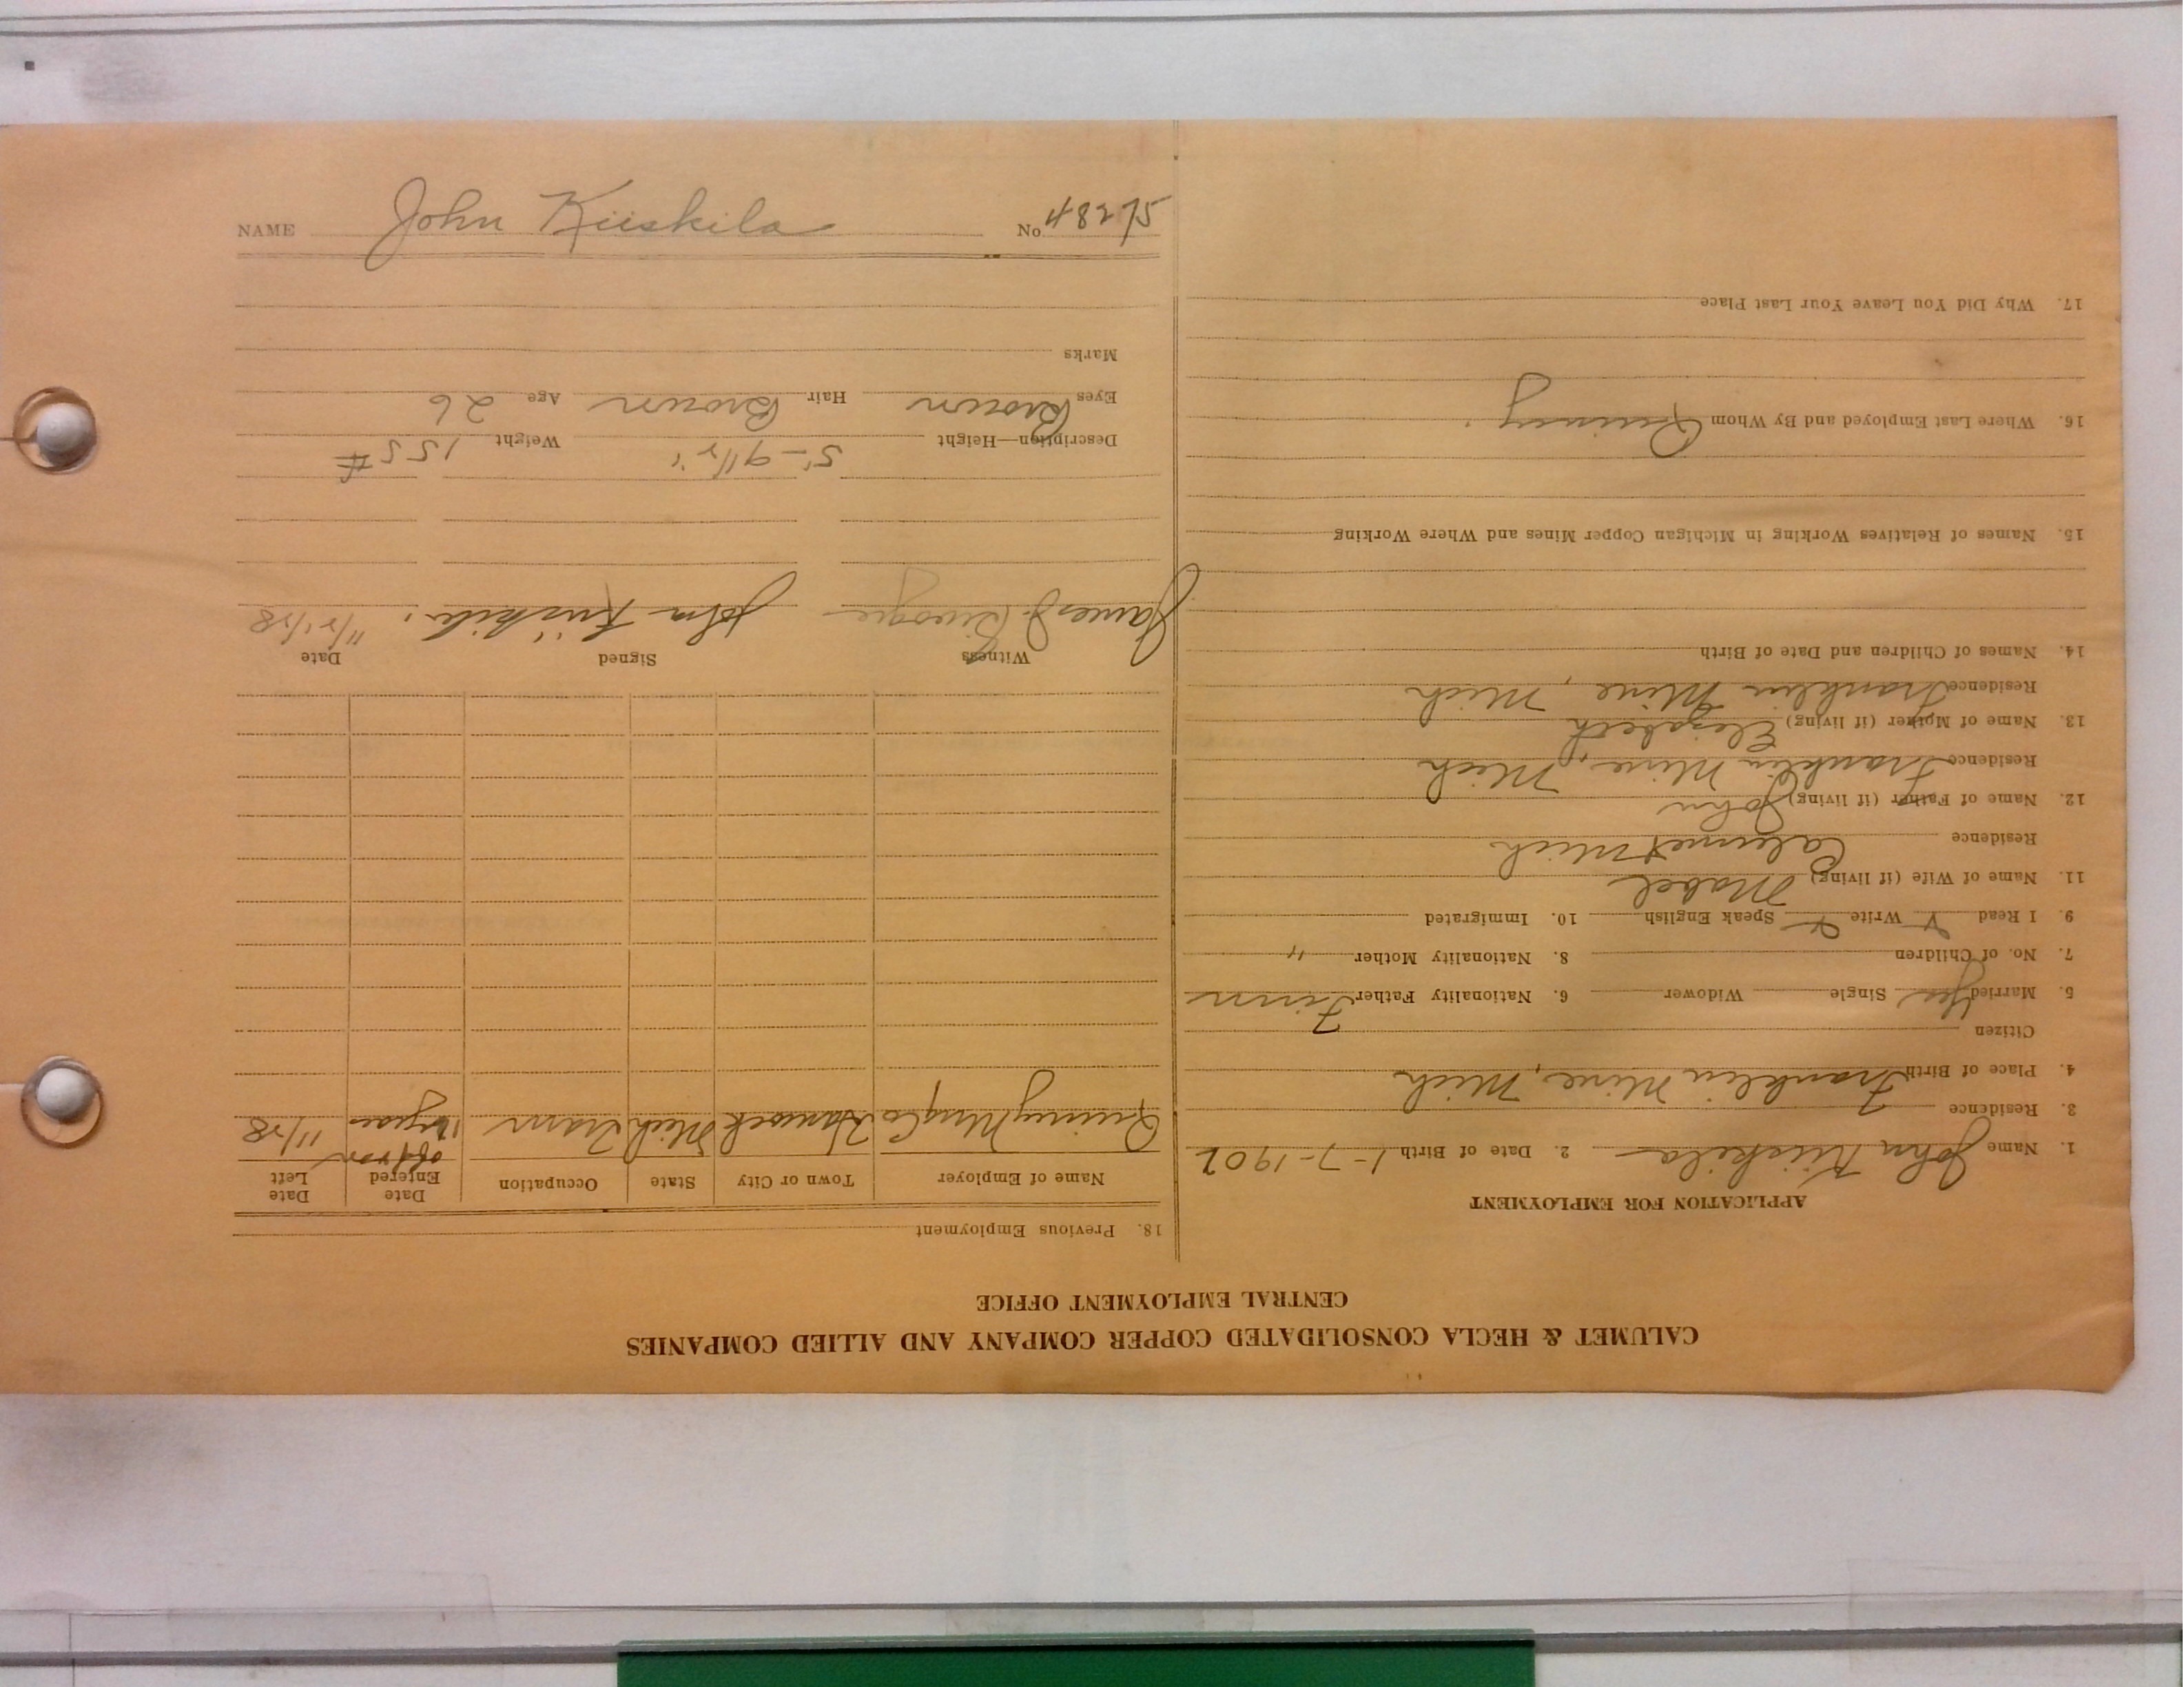 NAME John Kiiskila No 48275
CALUMET & HECLA CONSOLIDATED COPPER COMPANY AND ALLIED COMPANIES
CENTRAL EMPLOYMENT OFFICE
APPLICATION FOR EMPLOYMENT
1. Name John Kiiskila 2. Date of Birth 1-7-1902
3. Residence
4. Place of Birth Franklin Mine, Mich
Citizen
5. Married Yes Single Widower 6. Nationality Father Finn
7. No. of Children 8. Nationality Mother "
9. I Read Write Speak English 10. Immigrated
11. Name of Wife (if living) Mabel
Residence Calumet Mich
12. Name of Father (if living) John
Residence Franklin Mine, Mich
13. Name of Mother (if living) Elizabeth
Residence Franklin Mine, Mich
14. Names of Children and Date of Birth
15. Names of Relatives Working in Michigan Copper Mines and Where Working
16. Where Last Employed and By Whom Quincy.
17. Why Did You Leave Your Last Place
18. Previous Employment
Name of Employer Town or City State Occupation Date Entered Date Left
Quincy Mng Co Hancock Mich Tram off & on year 11/28
Witness Signed Date
James J. John Kiiskila. 11/21/28
Description—Height 5'-9 1/2" Weight 155 #
Eyes Brown Hair Brown Age 26
Marks